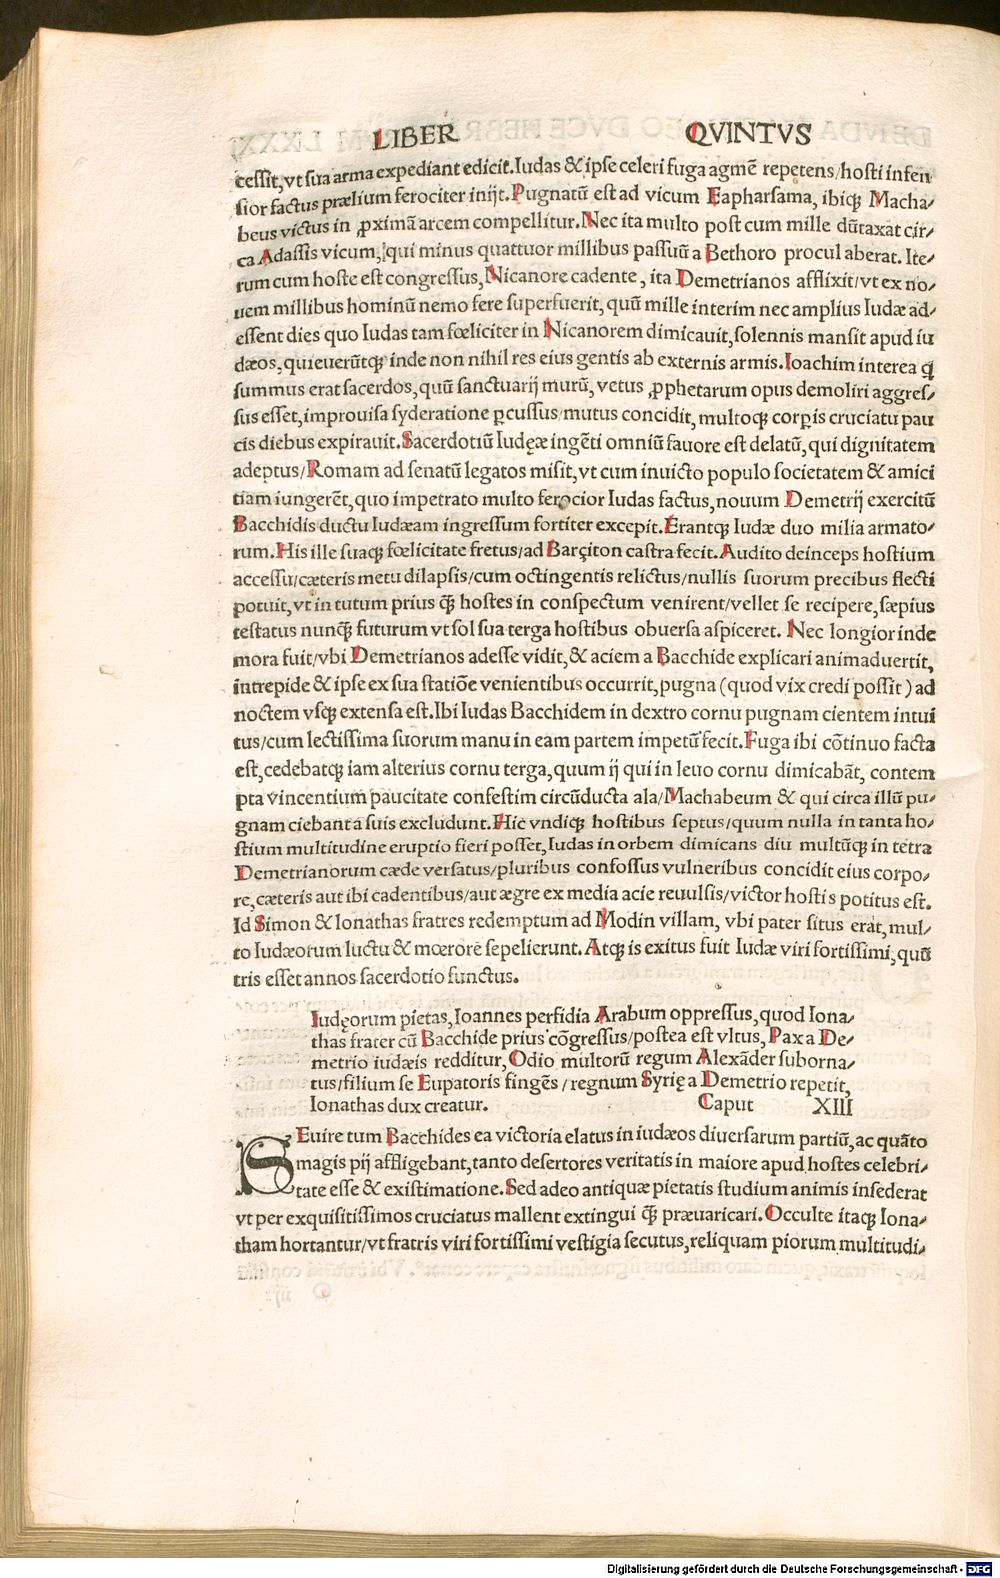 LIBER QVINTVS
cessit, vt sua arma expediant edicit. Iudas & ipse celeri fuga agmē repetens/hosti infen
sior factus prælium ferociter inijt. Pugnatū est ad vicum Eapharsama, ibiqꝫ Macha/
beus victus in ꝓximā arcem compellitur. Nec ita multo post cum mille dūtaxat cir/
ca Adassis vicum, qui minus quattuor millibus passuū a Bethoro procul aberat. Ite/
rum cum hoste est congressus, Nicanore cadente, ita Demetrianos afflixit/vt ex no/
uem millibus hominū nemo fere superfuerit, quū mille interim nec amplius Iudæ ad/
essent dies quo Iudas tam fœliciter in Nicanorem dimicauit, solennis mansit apud iu
dæos, quieuerūtqꝫ inde non nihil res eius gentis ab externis armis. Ioachim interea ꝗ
summus erat sacerdos, quū sanctuarij murū, vetus ꝓphetarum opus demoliri aggres/
sus esset, improuisa syderatione ꝑcussus/mutus concidit, multoqꝫ corꝑis cruciatu pau
cis diebus expirauit. Sacerdotiū Iudęæ ingēti omniū fauore est delatū, qui dignitatem
adeptus/Romam ad senatū legatos misit, vt cum inuicto populo societatem & amici
tiam iungerēt, quo impetrato multo ferocior Iudas factus, nouum Demetrij exercitū
Bacchidis ductu Iudæam ingressum fortiter excepit. Erantqꝫ Iudæ duo milia armato/
rum. His ille suaqꝫ fœlicitate fretus/ad Barçiton castra fecit. Audito deinceps hostium
accessu/cæteris metu dilapsis/cum octingentis relictus/nullis suorum precibus flecti
potuit, vt in tutum prius ꝙ̄ hostes in conspectum venirent/vellet se recipere, sæpius
testatus nunꝙ̄ futurum vt sol sua terga hostibus obuersa aspiceret. Nec longior inde
mora fuit/vbi Demetrianos adesse vidit, & aciem a Bacchide explicari animaduertit,
intrepide & ipse ex sua statiōe venientibus occurrit, pugna (quod vix credi possit) ad
noctem vsqꝫ extensa est. Ibi Iudas Bacchidem in dextro cornu pugnam cientem intui
tus/cum lectissima suorum manu in eam partem impetū fecit. Fuga ibi cōtinuo facta
est, cedebatqꝫ iam alterius cornu terga, quum ij qui in leuo cornu dimicabāt, contem
pta vincentium paucitate confestim circūducta ala/Machabeum & qui circa illū pu/
gnam ciebant a suis excludunt. Hic vndiqꝫ hostibus septus/quum nulla in tanta ho/
stium multitudine eruptio fieri posset, Iudas in orbem dimicans diu multūqꝫ in tetra
Demetrianorum cæde versatus/pluribus confossus vulneribus concidit eius corpo/
re, cæteris aut ibi cadentibus/aut ægre ex media acie reuulsis/victor hostis potitus est.
Id Simon & Ionathas fratres redemptum ad Modin villam, vbi pater situs erat, mul/
to Iudæorum luctu & mœrore sepelierunt. Atqꝫ is exitus fuit Iudæ viri fortissimi, quū
tris esset annos sacerdotio functus.
Iudęorum pietas, Ioannes perfidia Arabum oppressus, quod Iona/
thas frater cū Bacchide prius cōgressus/postea est vltus, Pax a De/
metrio iudæis redditur, Odio multorū regum Alexāder suborna/
tus/filium se Eupatoris fingēs/regnum Syrię a Demetrio repetit,
Ionathas dux creatur. Caput XIII
SEuire tum Bacchides ea victoria elatus in iudæos diuersarum partiū, ac quāto
magis pij affligebant, tanto desertores veritatis in maiore apud hostes celebri/
tate esse & existimatione. Sed adeo antiquæ pietatis studium animis insederat
vt per exquisitissimos cruciatus mallent extingui ꝙ̄ præuaricari. Occulte itaqꝫ Iona/
tham hortantur/vt fratris viri fortissimi vestigia secutus, reliquam piorum multitudi/
Digitalisierung gefördert durch die Deutsche Forschungsgemeinschaft - DFG